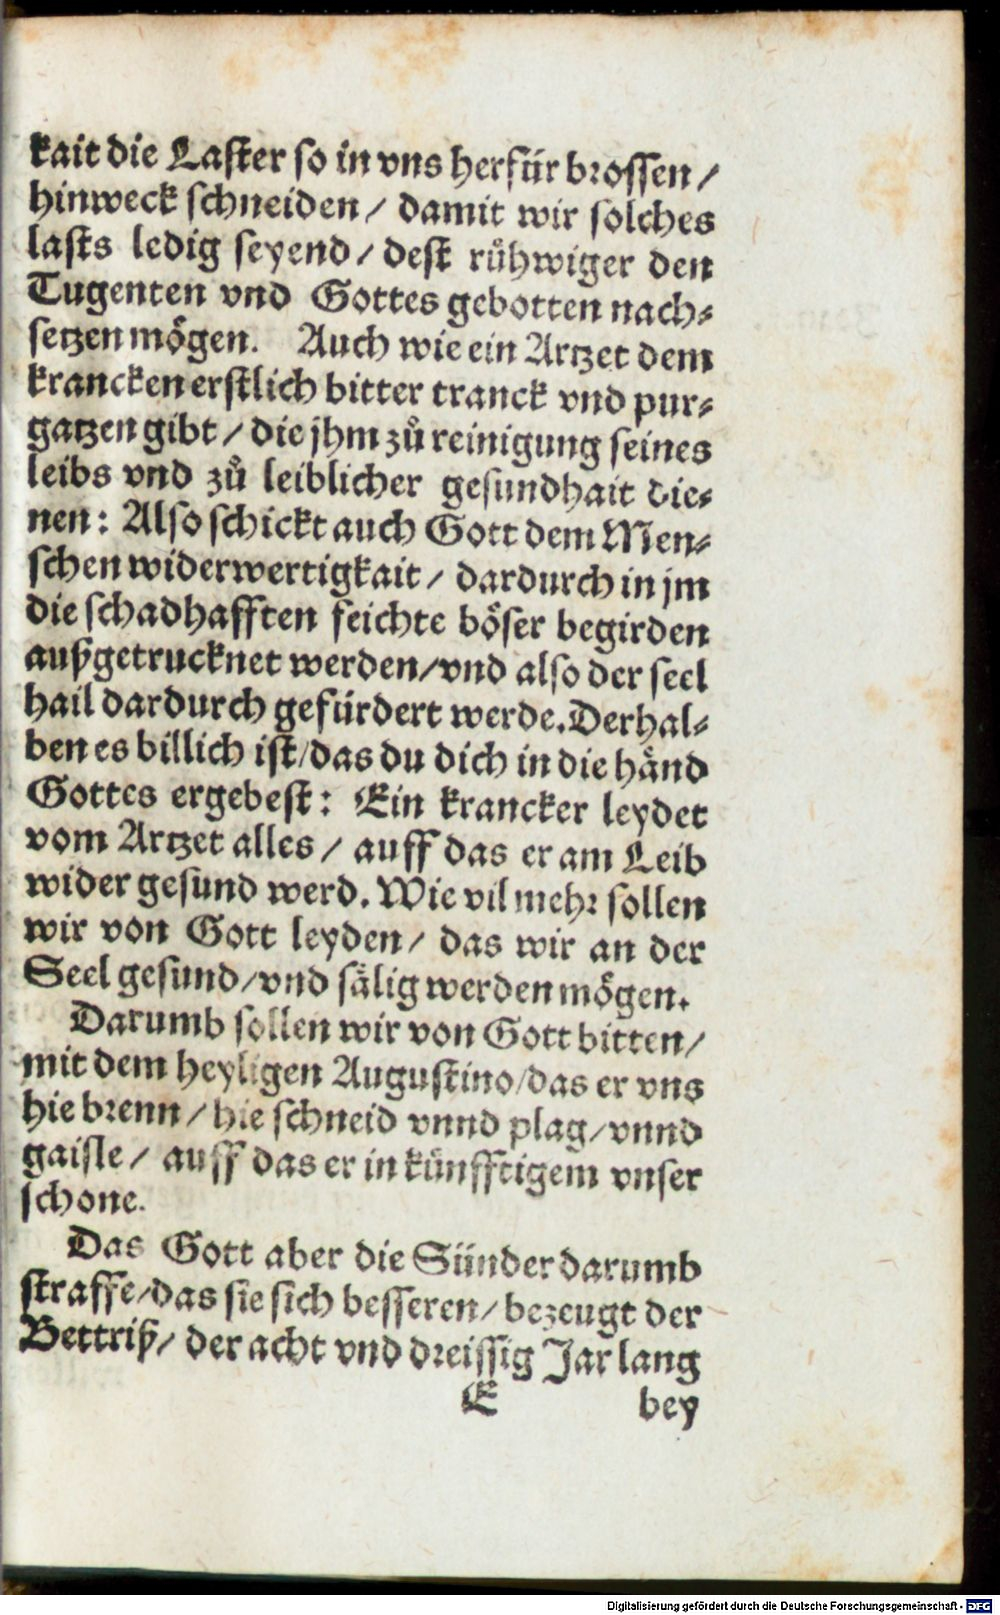 kait die Laster so in vns herfür brossen /
hinweck schneiden / damit wir solches
lasts ledig seyend / dest růhwiger den
Tugenten vnd Gottes gebotten nach⸗
setzen mögen. Auch wie ein Artzet dem
krancken erstlich bitter tranck vnd pur⸗
gatzen gibt / die jhm zů reinigung seines
leibs vnd zů leiblicher gesundhait die⸗
nen: Also schickt auch Gott dem Men⸗
schen widerwertigkait / dardurch in jm
die schadhafften feichte böser begirden
außgetrucknet werden/vnd also der seel
hail dardurch gefürdert werde. Derhal⸗
ben es billich ist/das du dich in die händ
Gottes ergebest: Ein krancker leydet
vom Artzet alles / auff das er am Leib
wider gesund werd. Wie vil mehr sollen
wir von Gott leyden/ das wir an der
Seel gesund/vnd sälig werden mögen.
Darumb sollen wir von Gott bitten/
mit dem heyligen Augustino/das er vns
hie brenn / hie schneid vnnd plag/vnnd
gaisle / auff das er in künfftigem vnser
schone.
Das Gott aber die Sünder darumb
straffe/das sie sich besseren/bezeugt der
Bettriß/ der acht vnd dreissig Jar lang
E bey
Digitalisierung gefördert durch die Deutsche Forschungsgemeinschaft - DFG